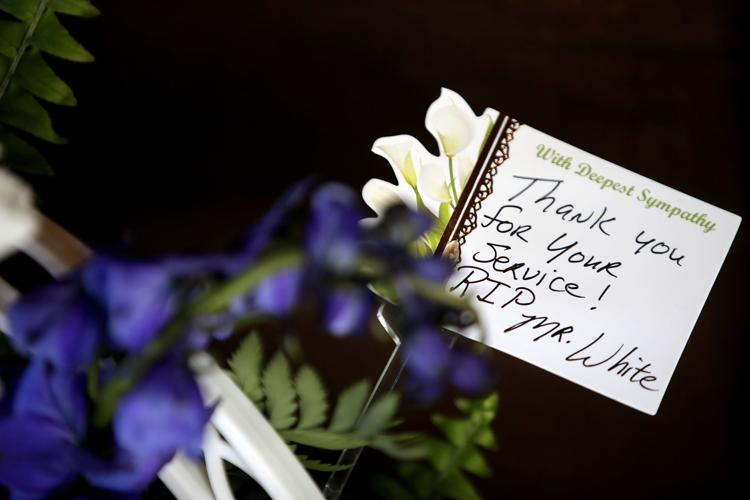 With Deepest Sympathy
Thank you
for Your
Service!
RIP
Mr. White